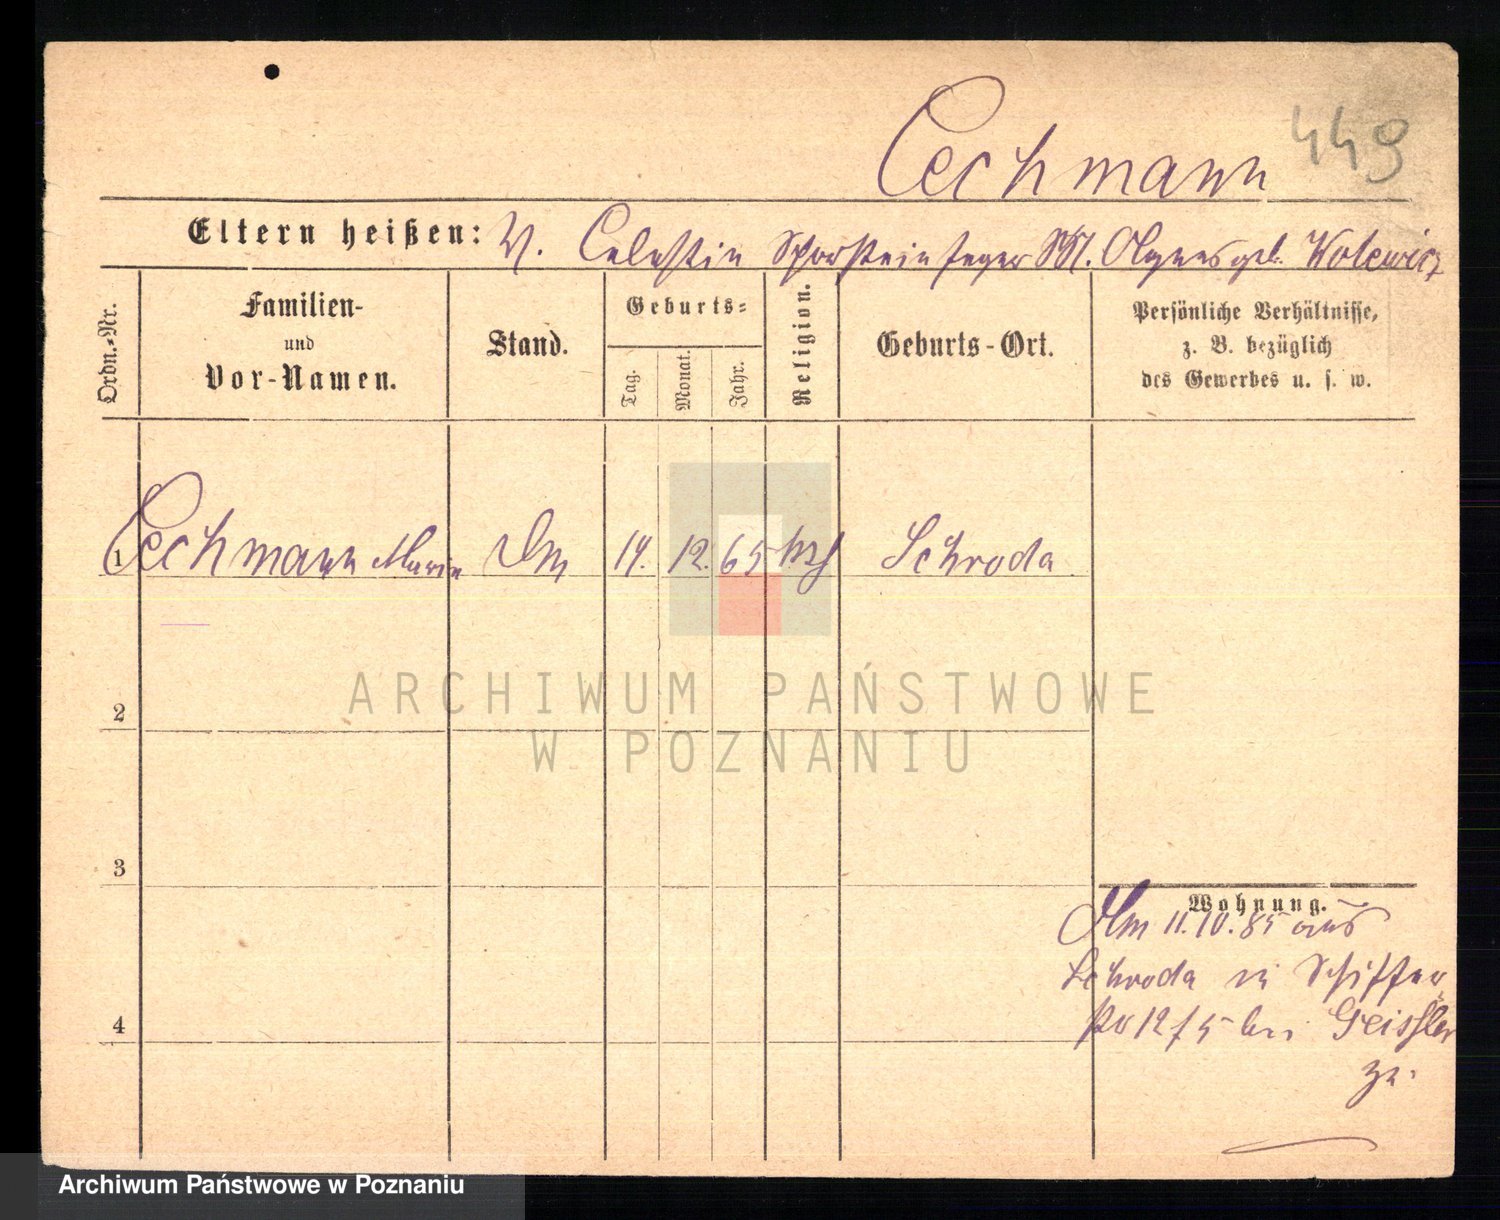 Cechmann
449
Eltern heißen: V. Celestin Schornsteinfeger M. Agnes geb. Wolewicz
Ordn.-Nr.
Familien- und Vor-Namen.
Stand.
Geburts-
Tag.
Monat.
Jahr.
Religion.
Geburts-Ort.
Persönliche Verhältnisse,
z. B. bezüglich
des Gewerbes u. s. w.
1 Cechmann Maria 12. 65 Schroda
2
3
4
Wohnung.
11.10.85 aus
Schroda in Schiffer
str 12 / 5 bei Geissler
zu.
ARCHIWUM PAŃSTWOWE
W POZNANIU
Archiwum Państwowe w Poznaniu